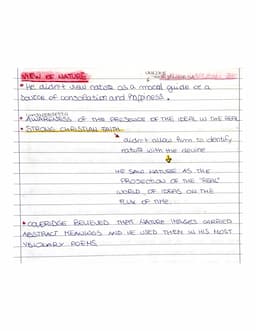 VIEW OF NATURE
UNLIKE
* He didn't view nature as a moral guide or a
source of consolation and happiness.
* AWARENESS OF THE PRESENCE OF THE IDEAL IN THE REAL
* STRONG CHRISTIAN FAITH
didn't allow him to identify
nature with the divine
HE SAW NATURE AS THE
PROJECTION OF THE "REAL"
WORLD OF IDEAS ON THE
FLUX OF TIME.
* COLERIDGE BELIEVED THAT NATURE IMAGES CARRIED
ABSTRACT MEANINGS AND HE USED THEM IN HIS MOST
VISIONARY POEMS.